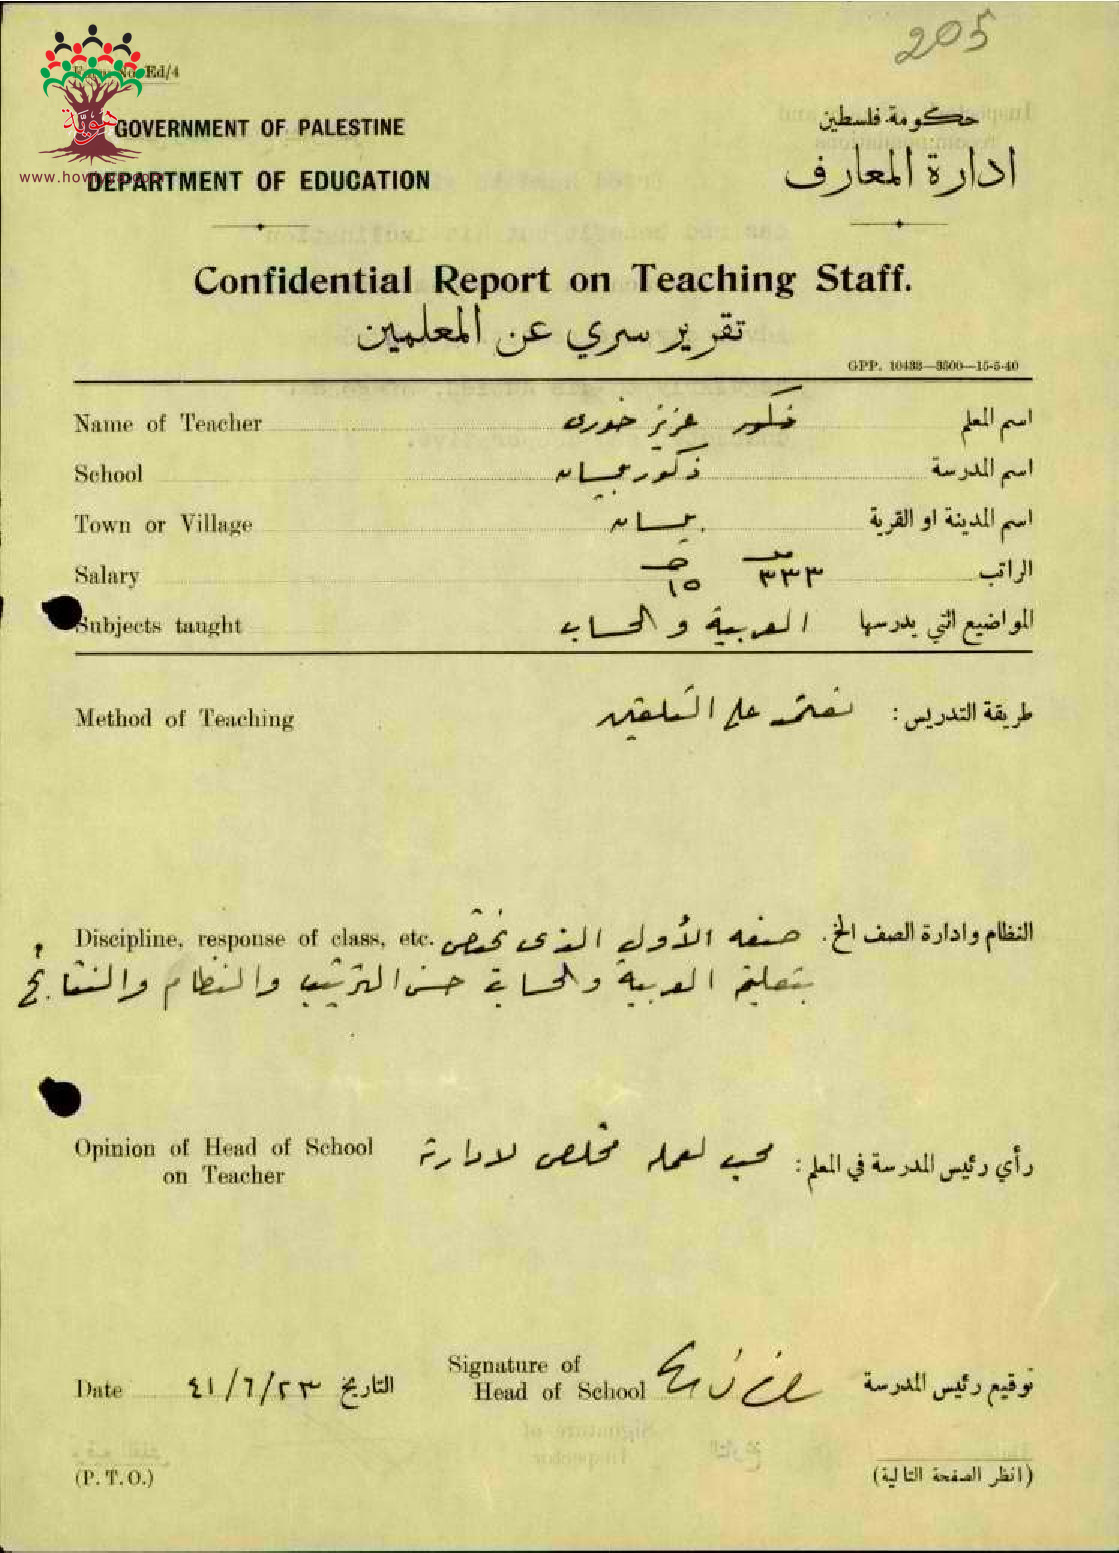 205
Form No. Ed/4
هوية
www.howiyya.com
GOVERNMENT OF PALESTINE
حكومة فلسطين
DEPARTMENT OF EDUCATION
ادارة المعارف
Confidential Report on Teaching Staff.
تقرير سري عن المعلمين
GPP. 10433—3500—15-5-40
Name of Teacher عزيز خوري اسم المعلم
School ذكور بيسان اسم المدرسة
Town or Village بيسان اسم المدينة او القرية
Salary ٣٣٣ ١٥ الراتب
Subjects taught العربية والحساب المواضيع التي يدرسها
Method of Teaching تعتمد على التلقين طريقة التدريس :
Discipline, response of class, etc. صفه الأول الذي يختص النظام وادارة الصف الخ.
بتعليم العربية والحساب حسن الترتيب والنظام والنتائج
Opinion of Head of School محب لعمله مخلص لادارته رأي رئيس المدرسة في المعلم :
on Teacher
Signature of
Date ٤١/٦/٢٣ التاريخ Head of School توقيع رئيس المدرسة
(P. T. O.) (انظر الصفحة التالية)